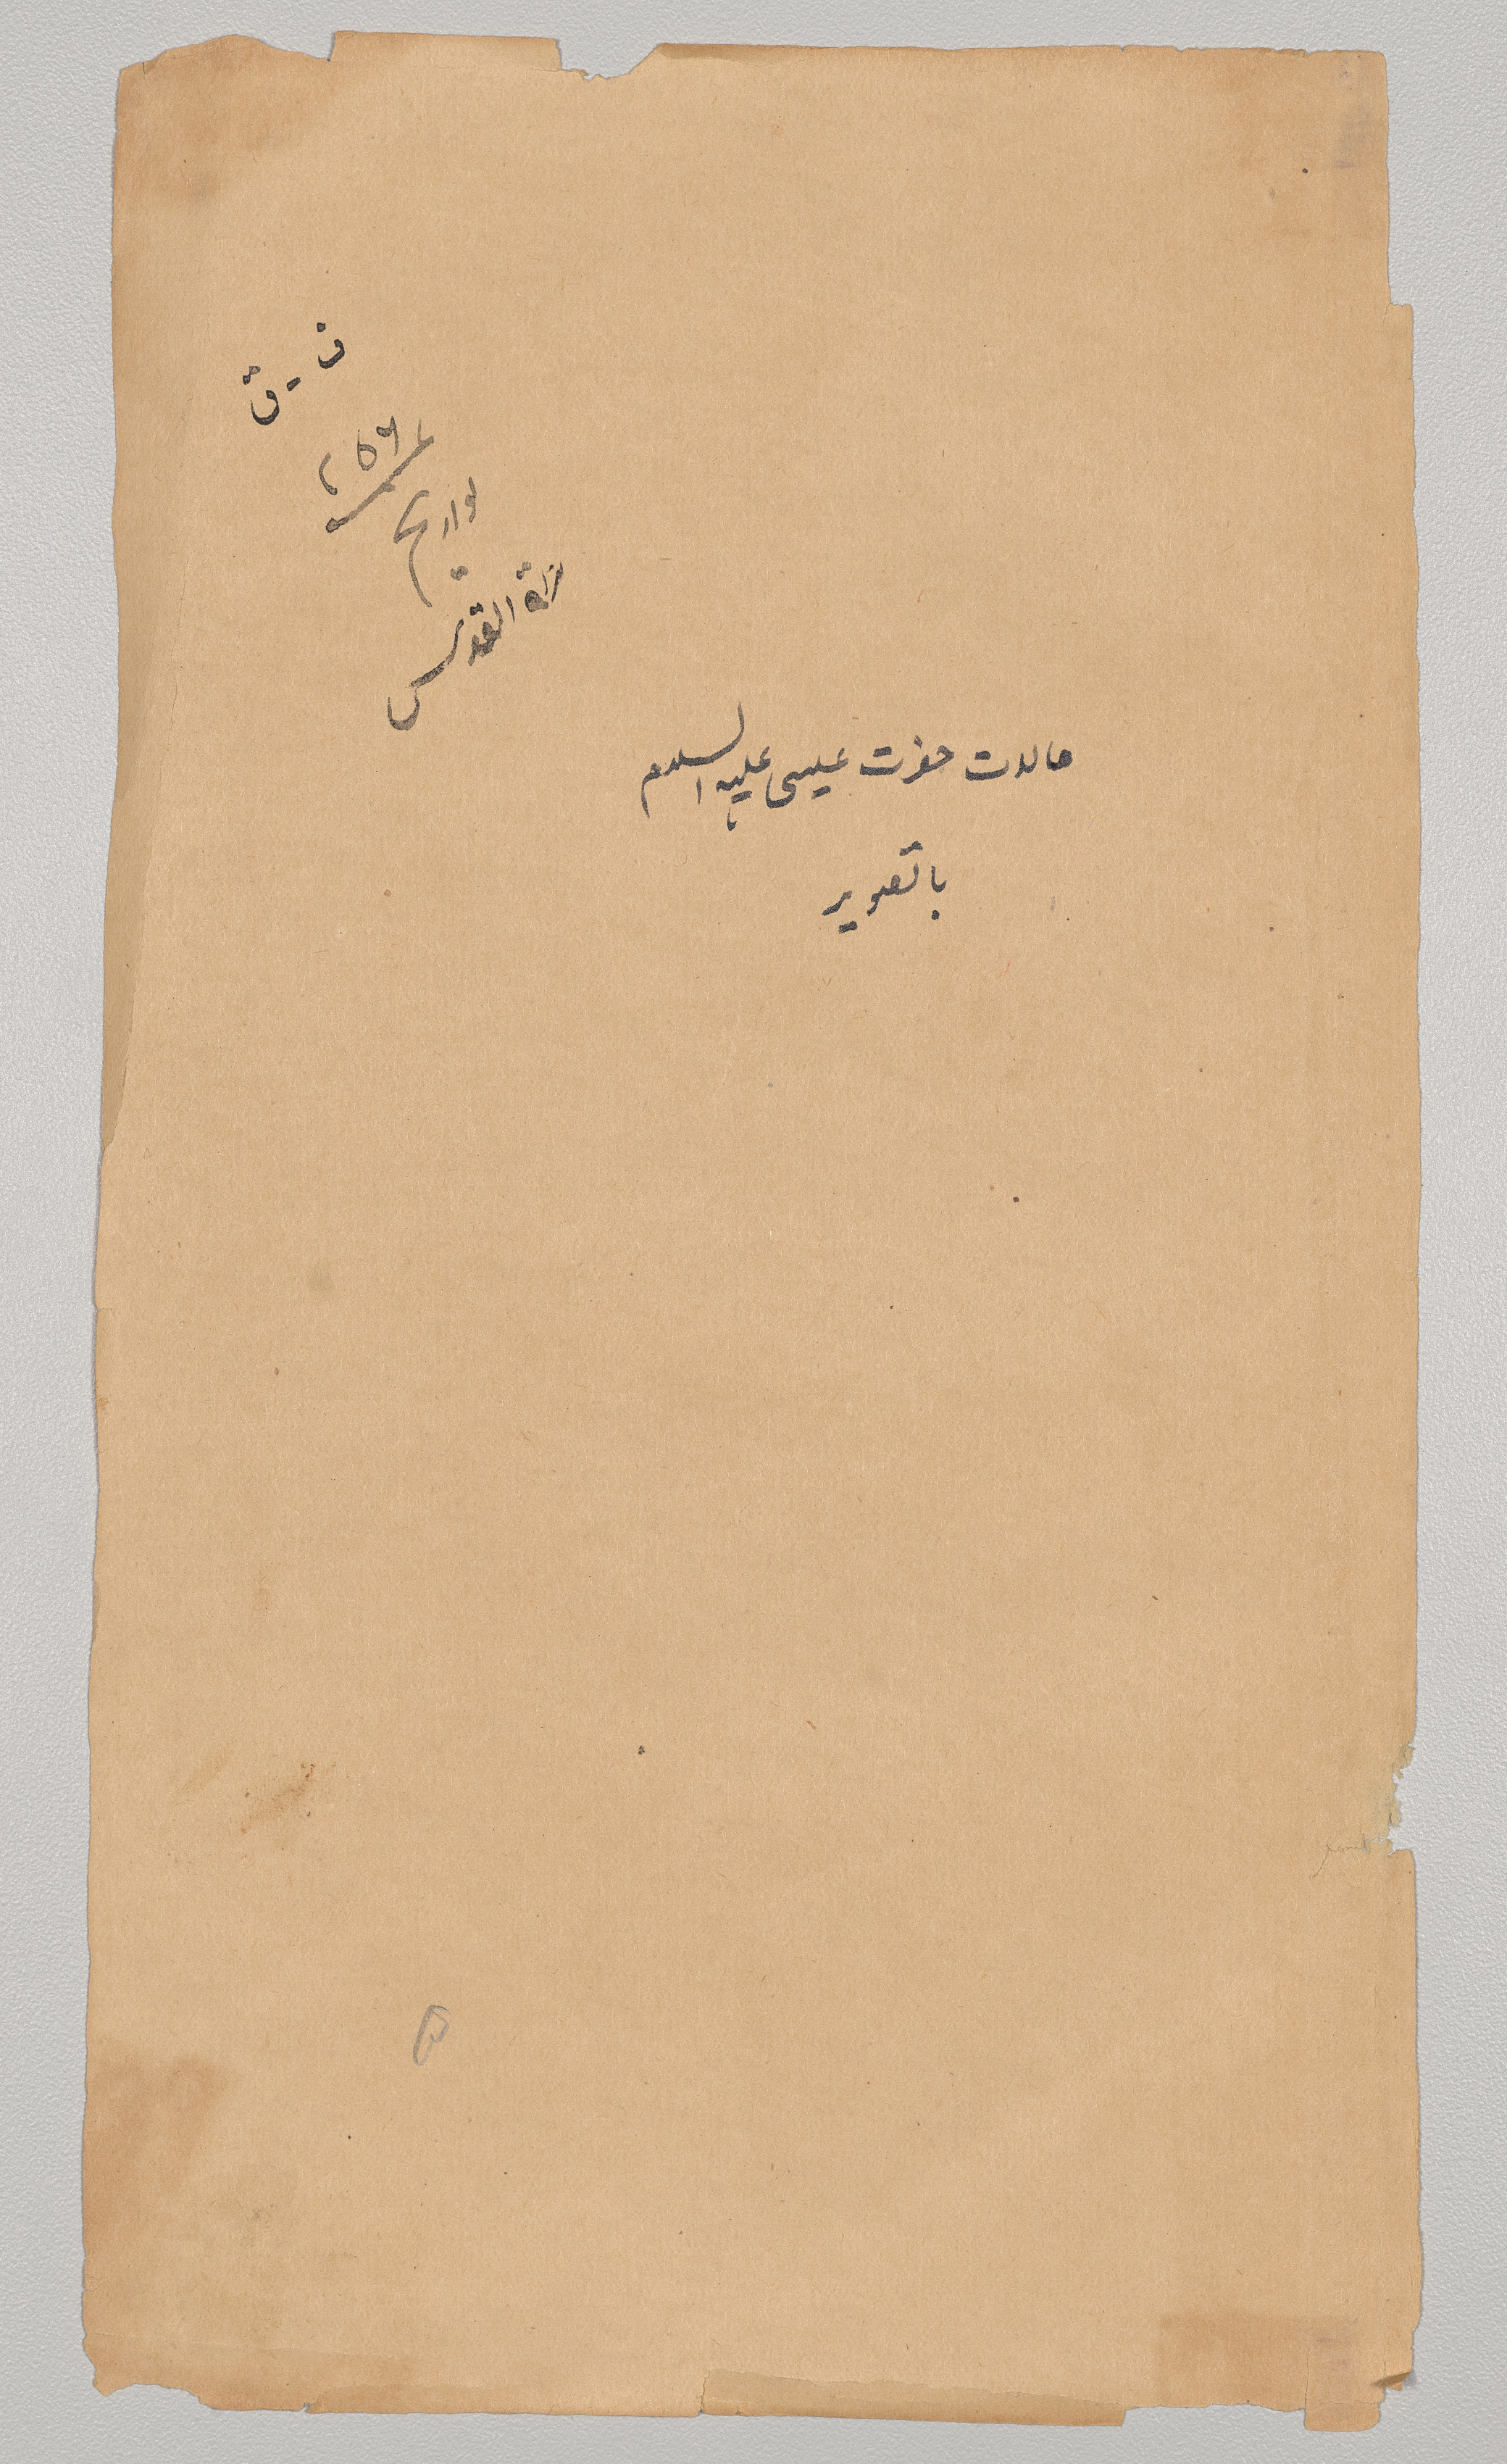 ف - ق
۲۵۶
تواریخ
مراة القدس
حالات حضرت عیسی علیہ السلام
با تصویر